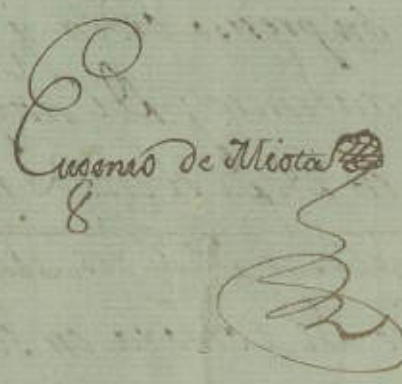 Eugenio de Miota